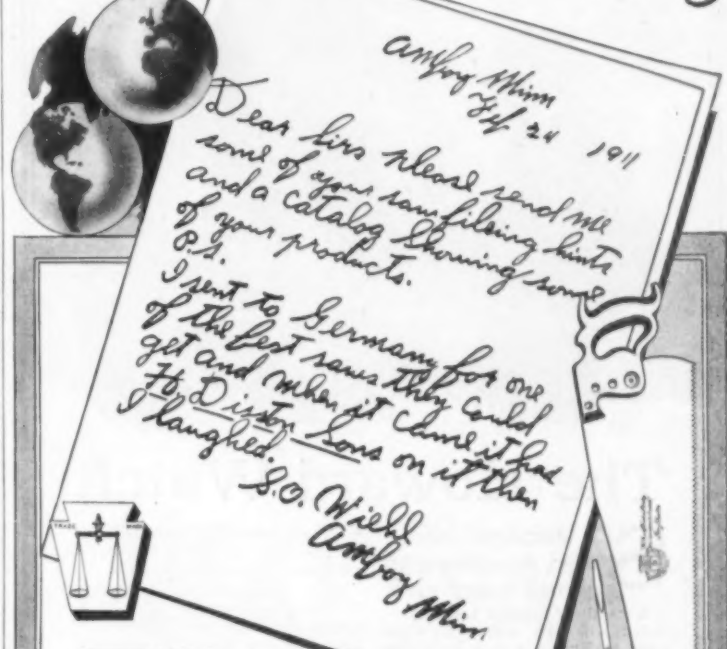 Amboy Minn
Feb 24 1911
Dear Sirs please send me
some of your saw filing hints
and a catalog showing some
of your products.
P.S.
I sent to Germany for one
of the best saws they could
get and when it came it had
H. Disston Sons on it then
I laughed.
S.O. Wiehl
Amboy
Minn.
TRADE MARK